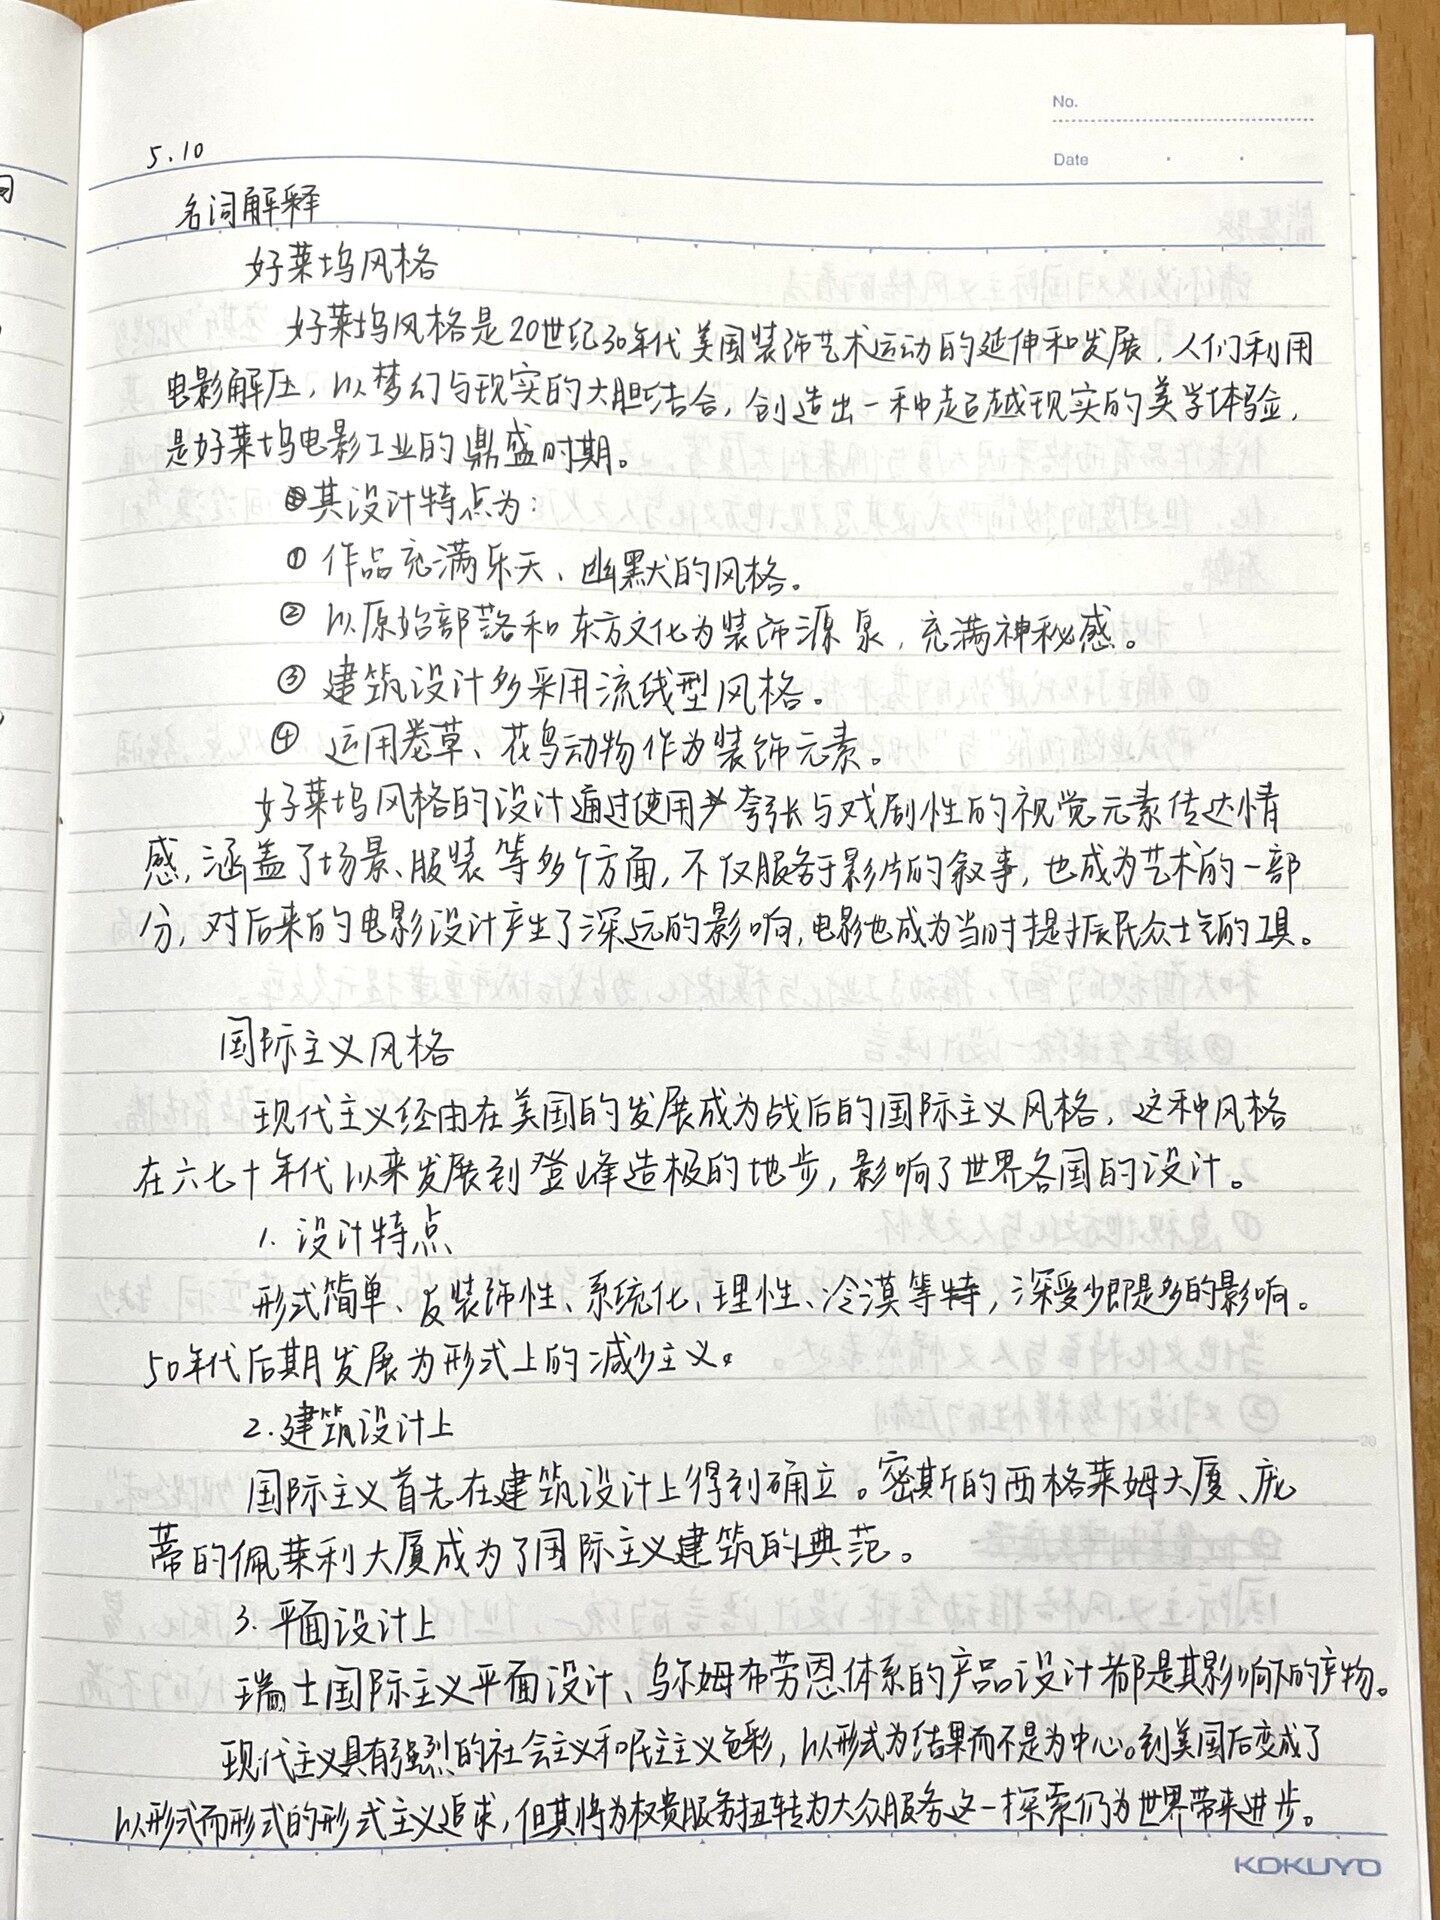 No.
Date
5.10
名词解释
好莱坞风格
好莱坞风格是20世纪30年代美国装饰艺术运动的延伸和发展，人们利用
电影解压，以梦幻与现实的大胆结合，创造出一种超越现实的美学体验，
是好莱坞电影工业的鼎盛时期。
其设计特点为：
① 作品充满乐天、幽默的风格。
② 以原始部落和东方文化为装饰源泉，充满神秘感。
③ 建筑设计多采用流线型风格。
④ 运用卷草、花鸟动物作为装饰元素。
好莱坞风格的设计通过使用夸张与戏剧性的视觉元素传达情
感，涵盖了场景、服装等多个方面，不仅服务于影片的叙事，也成为艺术的一部
分，对后来的电影设计产生了深远的影响，电影也成为当时提振民众士气的工具。
国际主义风格
现代主义经由在美国的发展成为战后的国际主义风格，这种风格
在六七十年代以来发展到登峰造极的地步，影响了世界各国的设计。
1. 设计特点
形式简单、反装饰性、系统化、理性、冷漠等特，深受少即是多的影响。
50年代后期发展为形式上的减少主义。
2. 建筑设计上
国际主义首先在建筑设计上得到确立。密斯的西格莱姆大厦、庞
蒂的佩莱利大厦成为了国际主义建筑的典范。
3. 平面设计上
瑞士国际主义平面设计、乌尔姆布劳恩体系的产品设计都是其影响下的产物。
现代主义具有强烈的社会主义和民主主义色彩，以形式为结果而不是为中心。到美国后变成了
以形式而形式的形式主义追求，但其将为权贵服务扭转为大众服务这一探索仍为世界带来进步。
KOKUYO